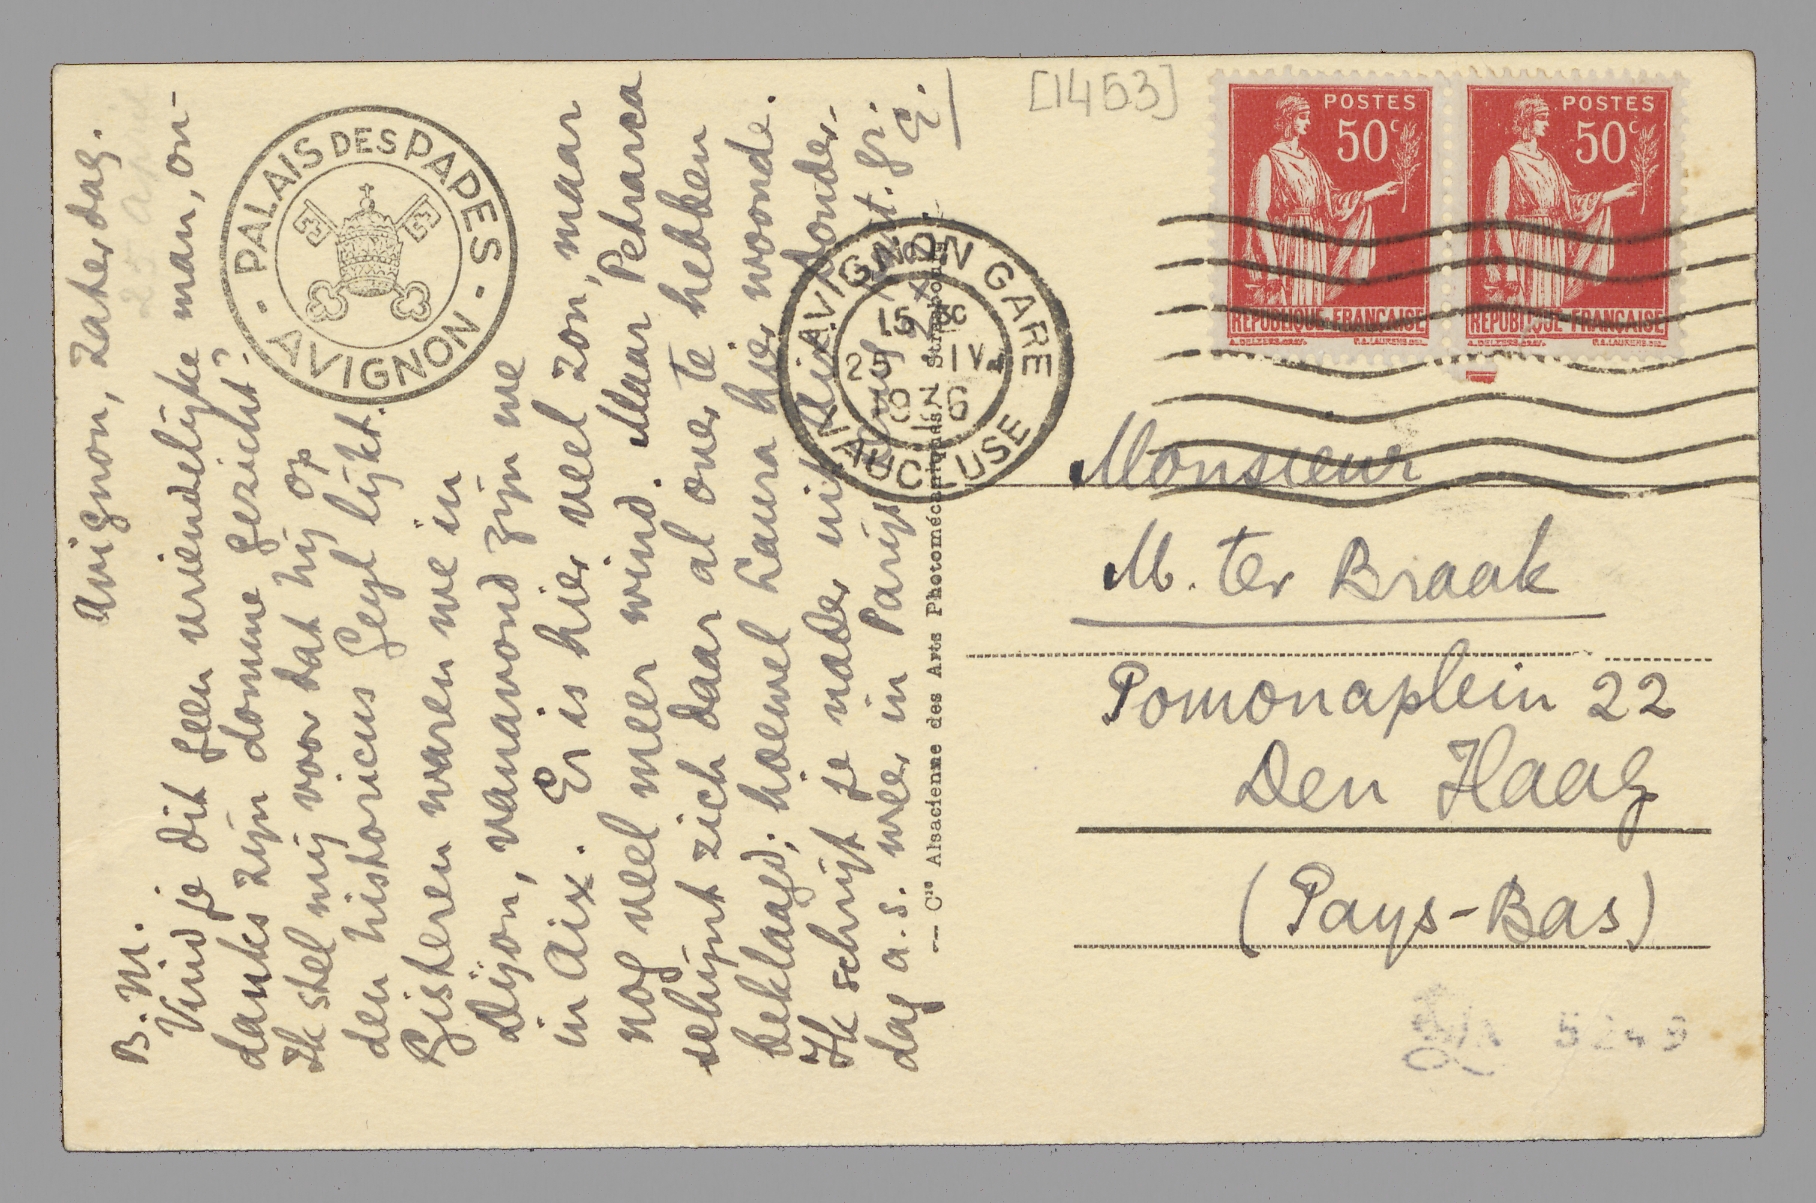 Avignon, Zaterdag.
B.M.
Vind je dit geen vriendelijke man, on-
danks zijn domme gezicht?
Ik stel mij voor dat hij op
den historicus Geyl lijkt.
Gisteren waren we in
Dijon, vanavond zijn we
in Aix. Er is hier veel zon, maar
nog veel meer wind. Maar Petrarca
schijnt zich daar al over te hebben
beklaagd; hoewel Laura hier woonde.
Ik schrijf je nader uit Aix. Donder-
dag a.s. weer in Parijs. gr.
E.
25 april
PALAIS DES PAPES
· AVIGNON ·
AVIGNON GARE
15 30
25 IV
36
VAUCLUSE
-- Cie Alsacienne des Arts Photomécaniques, Strasbourg
[1453]
POSTES
50c
REPUBLIQUE FRANÇAISE
POSTES
50c
REPUBLIQUE FRANÇAISE
Monsieur
M. ter Braak
Pomonaplein 22
Den Haag
(Pays-Bas)
5249